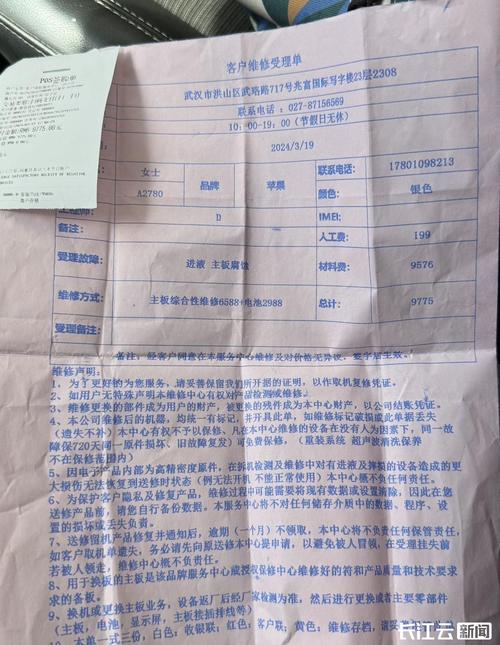 POS签购单
RMB 9775.00元
客户维修受理单
武汉市洪山区武珞路717号兆富国际写字楼23层2308
联系电话：027-87156569
10：00-19：00（节假日无休）
2024/3/19
女士
联系电话：
17801098213
A2780
品牌
苹果
颜色：
银色
工程师：
D
IMEI：
备注：
人工费：
199
受理故障：
进液 主板腐蚀
材料费：
9576
维修方式：
主板综合性维修6588+电池2988
总计：
9775
受理备注：
备注：经客户同意在本服务中心维修及对价格无异议，签字后生效。
维修声明：
1、为了更好的为您服务，请妥善保留我们所开据的证明，以作取机复修凭证。
2、如用户无特殊声明本维修中心有权对产品检测或维修。
3、维修更换的部件成为用户的财产，被更换的残件成为本中心财产，以公司结账凭证。
4、本公司维修后的机器，均统一有标记，并开具此单，如维修标记破损或此单据丢失
（遗失不补）本中心有权不予以保修，凡在本中心维修的设备在没有人为因素下，同一故
障保720天间一原件损坏、旧故障复发）可免费保修，（原装系统 超声波清洗保养
不在保修范围内）
5、因电子产品内部为高精密度原件，在拆机检测及维修中对有进液及摔损的设备造成的更
大损伤无法恢复到送修时状态（例无法开机 不能正常使用）本中心概不负任何责任。
6、为保护客户隐私及修复产品，维修过程中可能需要将现有数据或设置清除，因此在您
送修产品前，请您自行备份数据。本服务中心将不对任何储存介质中的数据、程序、设
置的损坏或丢失负责。
7、送修留机产品修复并通知后，逾期（一个月）不领取，本中心将不负责任何保管责任，
如客户取机单遗失，务必请先向原送修本中心提申请，以避免被人冒领，在受理挂失前
若被人领走，维修中心概不负责任。
8、用于换板的主板是该品牌服务中心或授权保修中心维修好的符和产品质量和技术要求
求的备板。
9、换机或更换主板业务，设备返厂后经厂家检测为准，然后进行更换或者主要零部件
（主板，电池，显示屏，主板各插排线等）
10、本单一式三份，白色：收银联；红色：客户联；黄色：维修存档，请妥善
长江云新闻